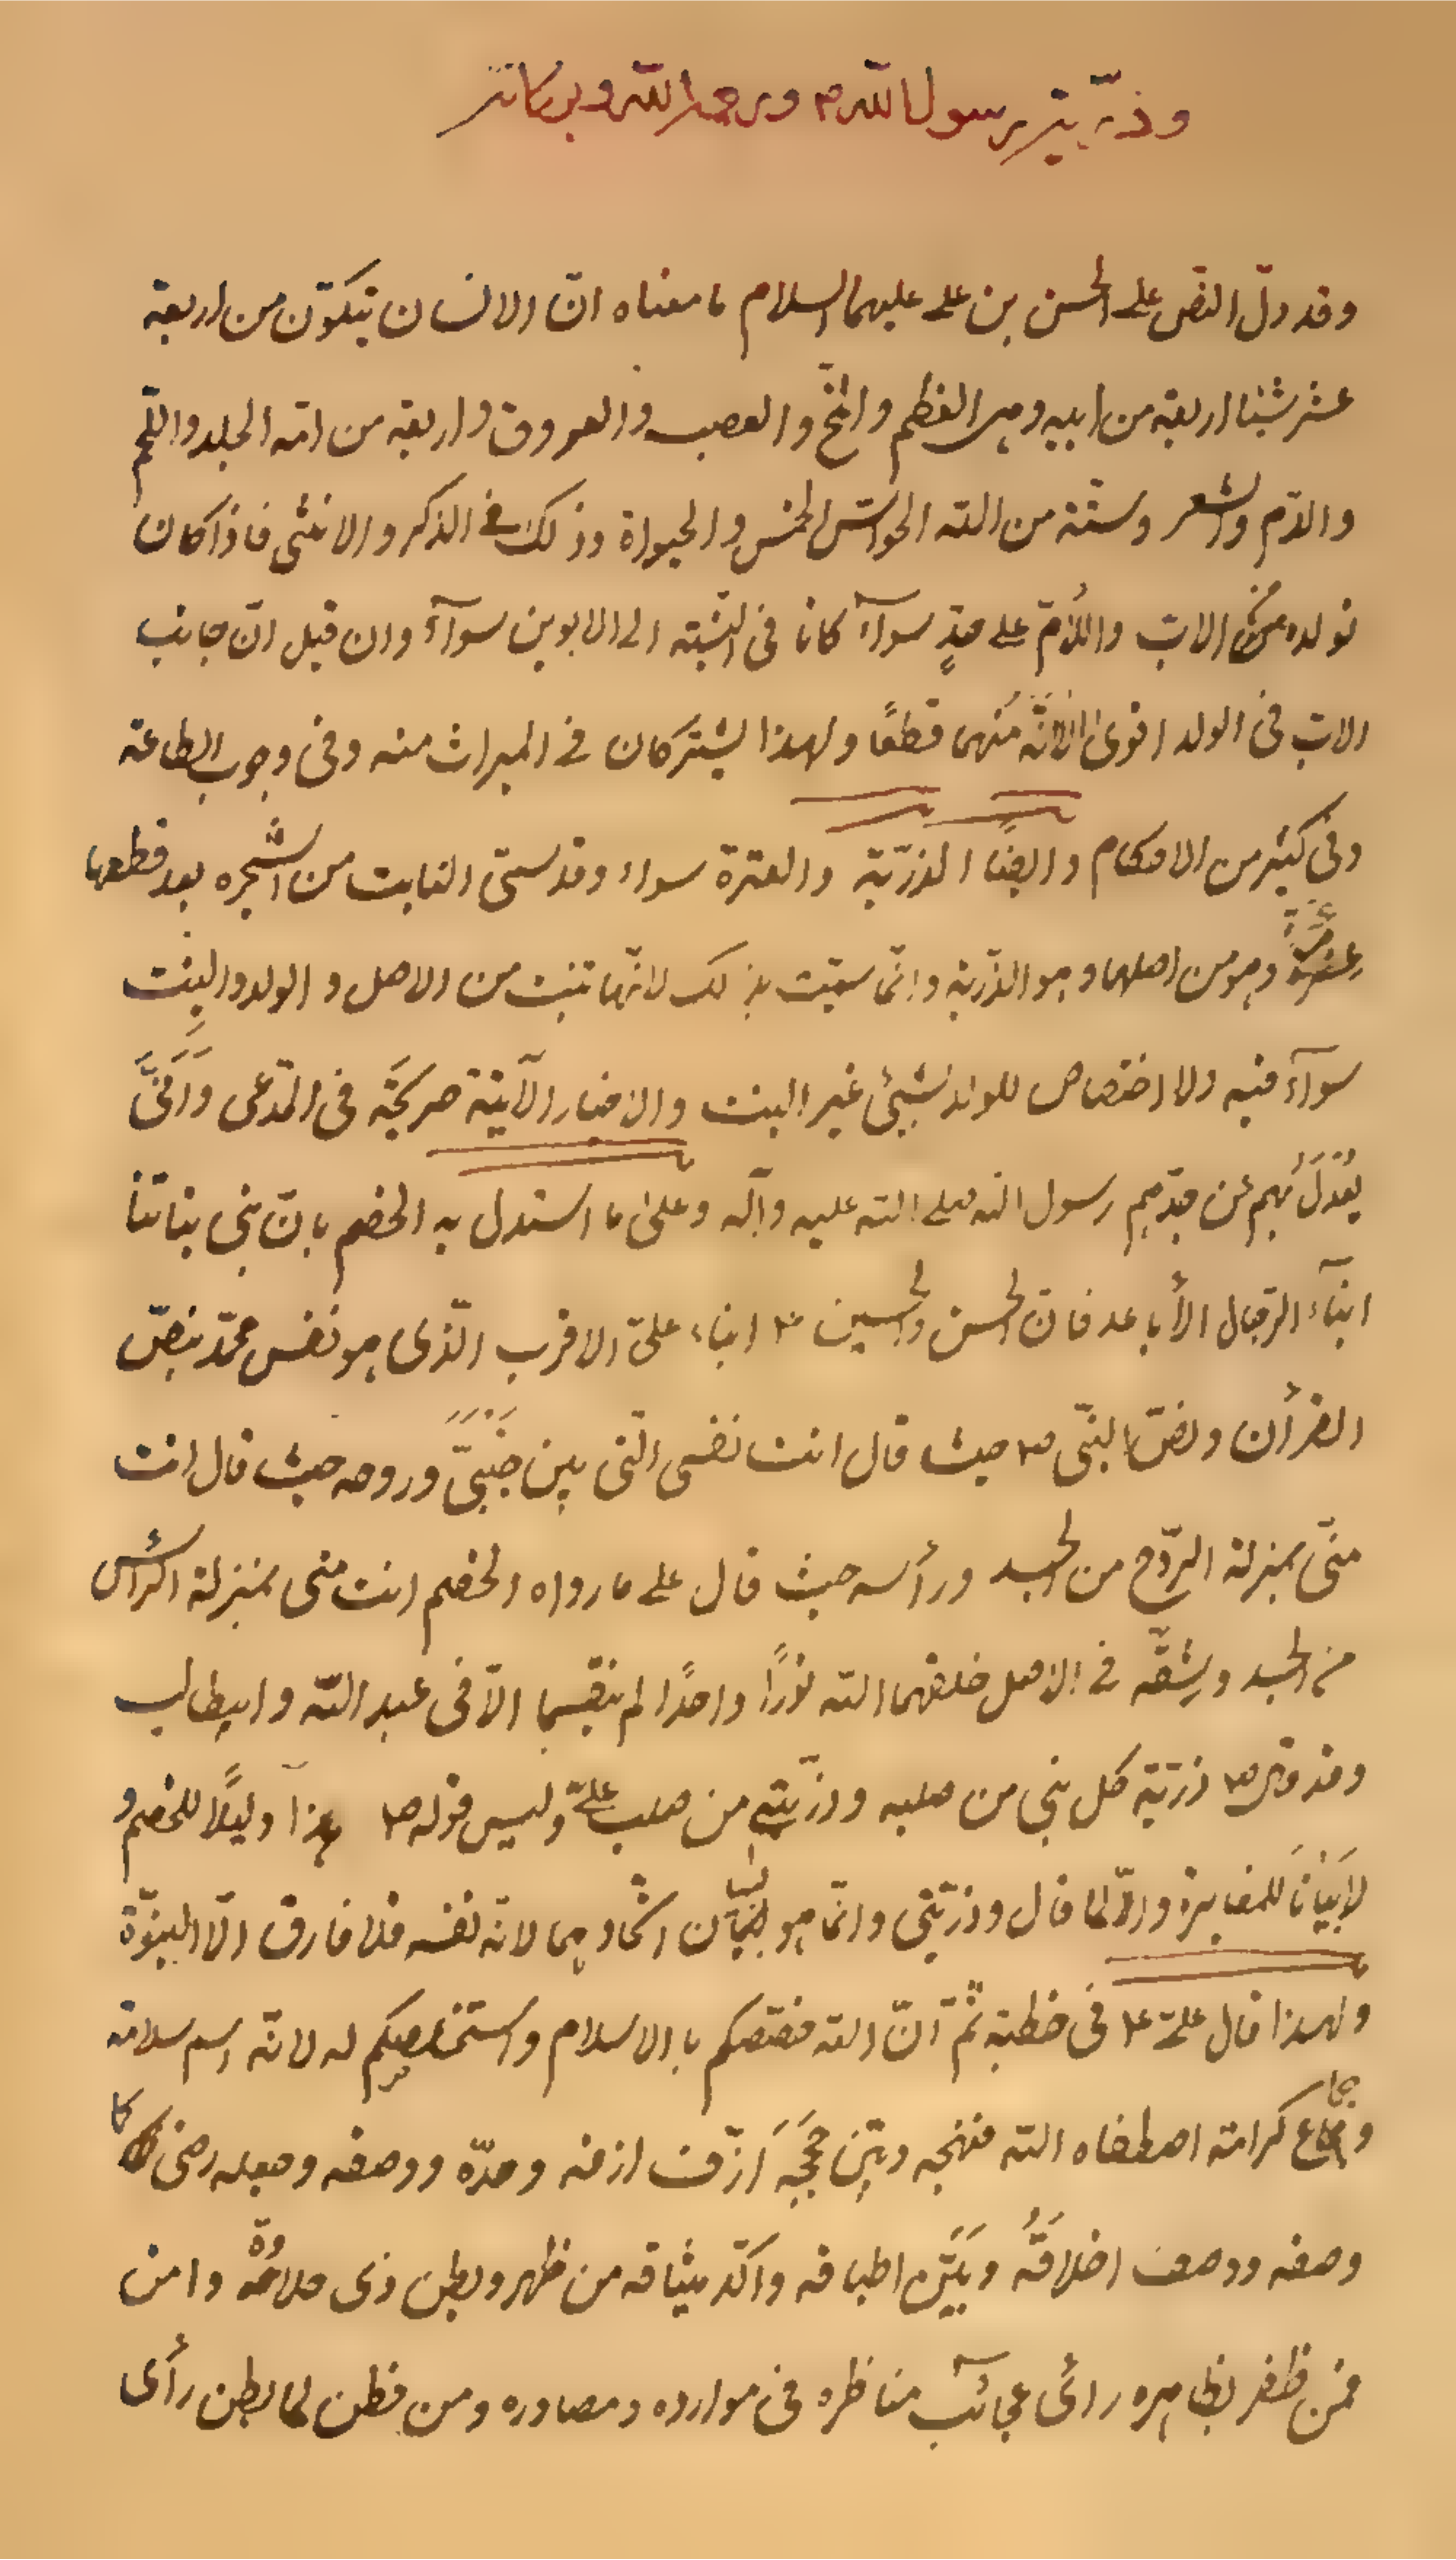 وذرّيّة رسول الله ص ورحمة الله وبركاته
وقد دلّ النصّ على الحسن بن علي عليهما السلام ما معناه انّ الانسان يتكوّن من اربعة
عشر شيئا اربعة من ابيه وهى العظم والمخّ والعصب والعروق واربعة من امّه الجلد واللّحم
والدّم والشعر وستّة من الله الحواسّ الخمس والحيوة وذلك فى الذكر والانثى فاذا كان
تولده من الاب والامّ على حدٍّ سوآء كانا فى النسبة الى الابوين سوآءً وان قيل انّ جانب
الاب فى الولد اقوى لانّه منهما قطعًا ولهذا يشتركان فى الميراث منه وفى وجوب الطاعة
وفى كثير من الاحكام وايضًا الذرّيّة والعترة سواء وقد سمّى النابت من الشجره بعد قطعها
عِترةً وهو من اصلها وهو الذّرية وانّما سمّيت بذلك لانّها تنبت من الاصل والولد والبِنت
سوآء فيه ولا اختصاص للولد بشيئ غير البنت والاخبار الآتية صريحَة فى المدّعى وَاَنّىَّ
يُعْدَلُ بُهم عن جدّهم رسول الله صلى الله عليه وآله وعلىٰ ما استدل به الخصم بانّ بنى بناتنا
ابنآء الرّجال الأباعد فانّ الحسن والحسين ع ابناء علىّ الاقرب الّذى هو نفس محمّد بنصّ
القرأن ونصّ النبّى ص حيث قال انت نفسى الّتى بين جَنْبَىَّ وروحه حيث قال انت
منّى بمنزلة الرّوح من الجسد ورأسه حيث قال على ما رواه الخصم انت منى بمنزلة الرأس
من الجسد وشِقّه فى الاصل خلقهما الله نورًا واحدًا لم ينقسما الاّ فى عبد الله وابيطالب
وقد قال ص ذرّيّة كل نبى من صلبه وذرّيّتى من صلب علىّ وليس قوله ص هذا دليلًا للخصم و
لا بَيْانَاَ للمغايرة والاّ لما قال وذرّيّتى وانّما هو لبيان اتّحادهما لانّه نفسه فلا فارق الّا النبوّة
ولهذا قال علىّ ع فى خطبته ثمّ انّ الله خصّكم بالاسلام واستخلصكم له لانّه اسم سلامة
وجماع كرامة اصطفاه الله فنهجه وبيّن حُجَجَه اَرّف ازفه وحدّه ووصفه وجعله رضى كما
وصفه ووصف اخلاقَهُ وبَيَّن اطباقه واكّد ميثاقه من ظهر وبطن ذى حلاوة وامن
فمن ظفر بظاهره رائ عجائب مناظره فى موارده ومصادره ومن فطن لما بطن رأى